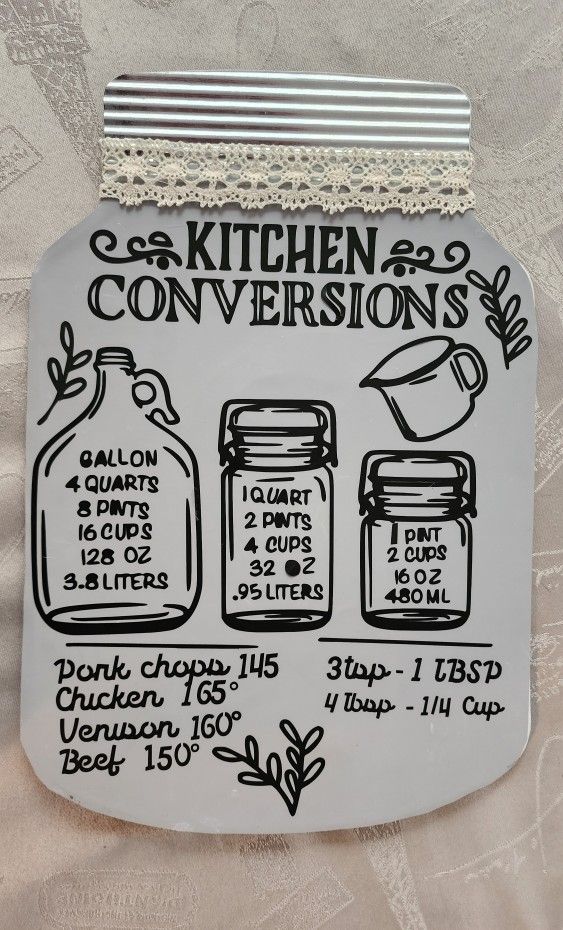 KITCHEN
CONVERSIONS
GALLON
4 QUARTS
8 PINTS
16 CUPS
128 OZ
3.8 LITERS
1 QUART
2 PINTS
4 CUPS
32 OZ
.95 LITERS
1 PINT
2 CUPS
16 OZ
480 ML
Pork chops 145
Chicken 165°
Venison 160°
Beef 150°
3tsp - 1 TBSP
4 Tbsp - 1/4 Cup